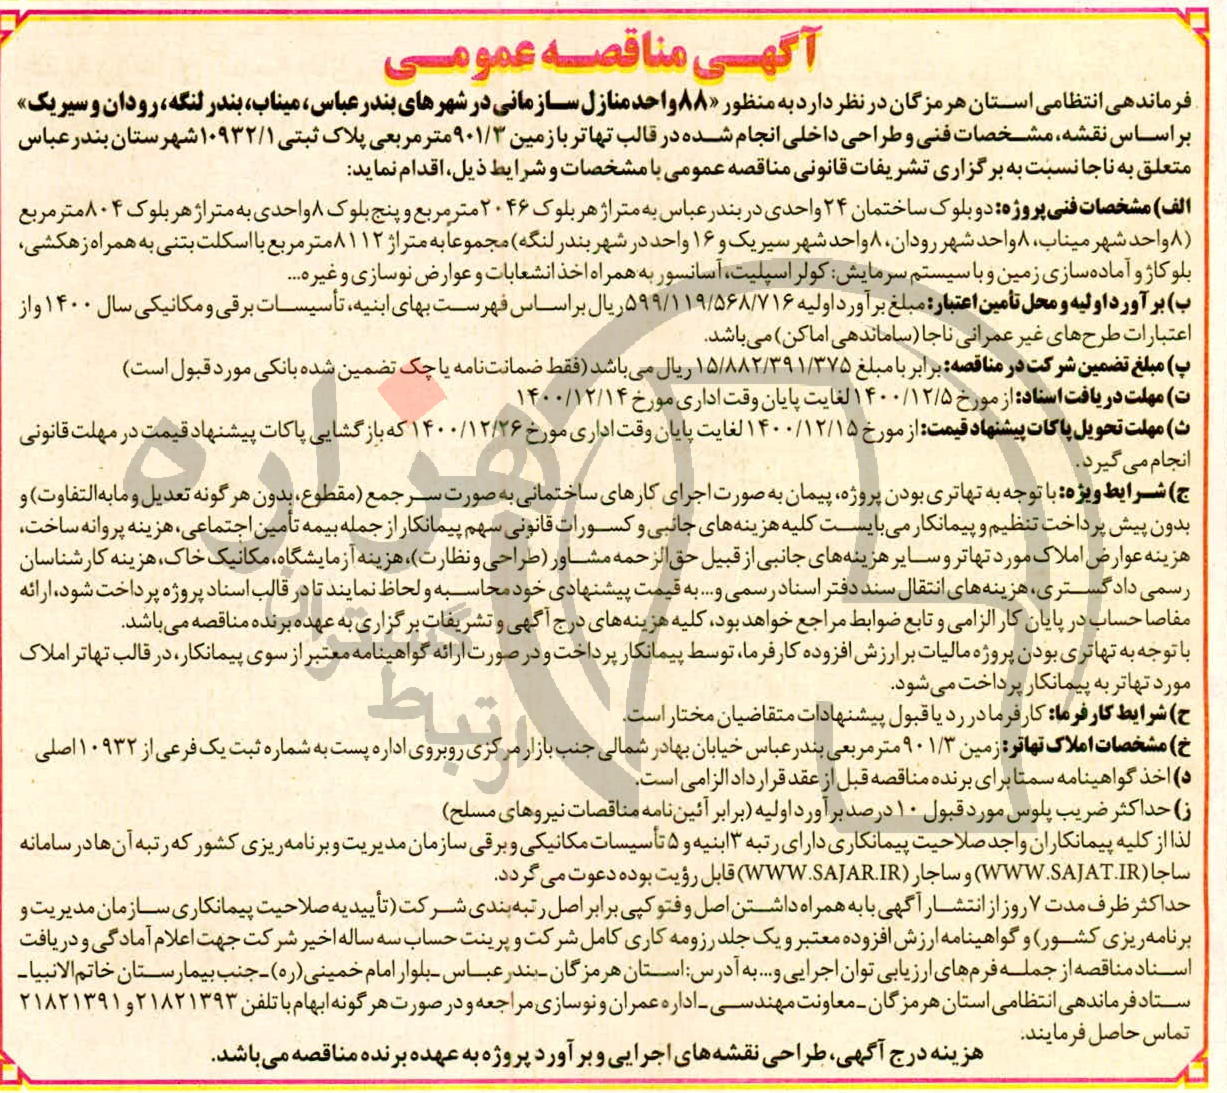 آگهـی مناقصـه عمومـی
فرماندهی انتظامی اسـتان هرمزگان در نظر دارد به منظور «۸۸ واحد منازل سـازمانی در شهرهای بندرعباس، میناب، بندر لنگه، رودان و سیریک»
بر اساس نقشه، مشـخصات فنی و طراحی داخلی انجام شـده در قالب تهاتر با زمین ۹۰۱/۳ مترمربعی پلاک ثبتی ۱۰۹۳۲/۱ شهرستان بندرعباس
متعلق به ناجا نسبت به برگزاری تشریفات قانونی مناقصه عمومی با مشخصات و شرایط ذیل، اقدام نماید:
الف) مشخصات فنی پروژه: دو بلوک ساختمان ۲۴ واحدی در بندرعباس به متراژ هر بلوک ۲۰۴۶ مترمربع و پنج بلوک ۸ واحدی به متراژ هر بلوک ۸۰۴ مترمربع
(۸ واحد شهر میناب، ۸ واحد شهر رودان، ۸ واحد شهر سیریک و ۱۶ واحد در شهر بندر لنگه) مجموعاً به متراژ ۸۱۱۲ مترمربع با اسکلت بتنی به همراه زهکشی،
بلوکاژ و آماده‌سازی زمین و با سیستم سرمایش: کولر اسپلیت، آسانسور به همراه اخذ انشعابات و عوارض نوسازی و غیره...
ب) برآورد اولیه و محل تأمین اعتبار: مبلغ برآورد اولیه ۵۹۹/۱۱۹/۵۶۸/۷۱۶ ریال بر اساس فهرست بهای ابنیه، تأسیسات برقی و مکانیکی سال ۱۴۰۰ و از
اعتبارات طرح‌های غیر عمرانی ناجا (ساماندهی اماکن) می‌باشد.
پ) مبلغ تضمین شرکت در مناقصه: برابر با مبلغ ۱۵/۸۸۲/۳۹۱/۳۷۵ ریال می‌باشد (فقط ضمانت‌نامه یا چک تضمین شده بانکی مورد قبول است)
ت) مهلت دریافت اسناد: از مورخ ۱۴۰۰/۱۲/۵ لغایت پایان وقت اداری مورخ ۱۴۰۰/۱۲/۱۴
ث) مهلت تحویل پاکات پیشنهاد قیمت: از مورخ ۱۴۰۰/۱۲/۱۵ لغایت پایان وقت اداری مورخ ۱۴۰۰/۱۲/۲۶ که بازگشایی پاکات پیشنهاد قیمت در مهلت قانونی
انجام می‌گیرد.
ج) شـرایط ویژه: با توجه به تهاتری بودن پروژه، پیمان به صورت اجرای کارهای ساختمانی به صورت سـرجمع (مقطوع، بدون هرگونه تعدیل و مابه‌التفاوت) و
بدون پیش پرداخت تنظیم و پیمانکار می‌بایست کلیه هزینه‌های جانبی و کسورات قانونی سهم پیمانکار از جمله بیمه تأمین اجتماعی، هزینه پروانه ساخت،
هزینه عوارض املاک مورد تهاتر و سایر هزینه‌های جانبی از قبیل حق‌الزحمه مشاور (طراحی و نظارت)، هزینه آزمایشگاه، مکانیک خاک، هزینه کارشناسان
رسمی دادگستری، هزینه‌های انتقال سند دفتر اسناد رسمی و... به قیمت پیشنهادی خود محاسبه و لحاظ نمایند تا در قالب اسناد پروژه پرداخت شود، ارائه
مفاصا حساب در پایان کار الزامی و تابع ضوابط مراجع خواهد بود، کلیه هزینه‌های درج آگهی و تشریفات برگزاری به عهده برنده مناقصه می‌باشد.
با توجه به تهاتری بودن پروژه مالیات بر ارزش افزوده کارفرما، توسط پیمانکار پرداخت و در صورت ارائه گواهینامه معتبر از سوی پیمانکار، در قالب تهاتر املاک
مورد تهاتر به پیمانکار پرداخت می‌شود.
ح) شرایط کارفرما: کارفرما در رد یا قبول پیشنهادات متقاضیان مختار است.
خ) مشخصات املاک تهاتر: زمین ۹۰۱/۳ مترمربعی بندرعباس خیابان بهادر شمالی جنب بازار مرکزی روبروی اداره پست به شماره ثبت یک فرعی از ۱۰۹۳۲ اصلی
د) اخذ گواهینامه سمتا برای برنده مناقصه قبل از عقد قرارداد الزامی است.
ز) حداکثر ضریب پلوس مورد قبول ۱۰ درصد برآورد اولیه (برابر آئین‌نامه مناقصات نیروهای مسلح)
لذا از کلیه پیمانکاران واجد صلاحیت پیمانکاری دارای رتبه ۳ ابنیه و ۵ تأسیسات مکانیکی و برقی سازمان مدیریت و برنامه‌ریزی کشور که رتبه آن‌ها در سامانه
ساجا (WWW.SAJAT.IR) و ساجار (WWW.SAJAR.IR) قابل رؤیت بوده دعوت می‌گردد.
حداکثر ظرف مدت ۷ روز از انتشـار آگهی با به همراه داشـتن اصل و فتوکپی برابر اصل رتبه‌بندی شـرکت (تأییدیه صلاحیت پیمانکاری سـازمان مدیریت و
برنامه‌ریزی کشـور) و گواهینامه ارزش افزوده معتبر و یک جلد رزومه کاری کامل شرکت و پرینت حساب سه ساله اخیر شرکت جهت اعلام آمادگی و دریافت
اسـناد مناقصه از جملـه فرم‌های ارزیابی توان اجرایی و... به آدرس: اسـتان هرمزگان ـ بندرعبـاس ـ بلوار امام خمینی (ره) ـ جنب بیمارسـتان خاتم‌الانبیا ـ
سـتاد فرماندهی انتظامی استان هرمزگان ـ معاونت مهندسـی ـ اداره عمران و نوسازی مراجعه و در صورت هرگونه ابهام با تلفن ۲۱۸۲۱۳۹۳ و ۲۱۸۲۱۳۹۱
تماس حاصل فرمایند.
هزینه درج آگهی، طراحی نقشه‌های اجرایی و برآورد پروژه به عهده برنده مناقصه می‌باشد.
هزاره
ارتباط